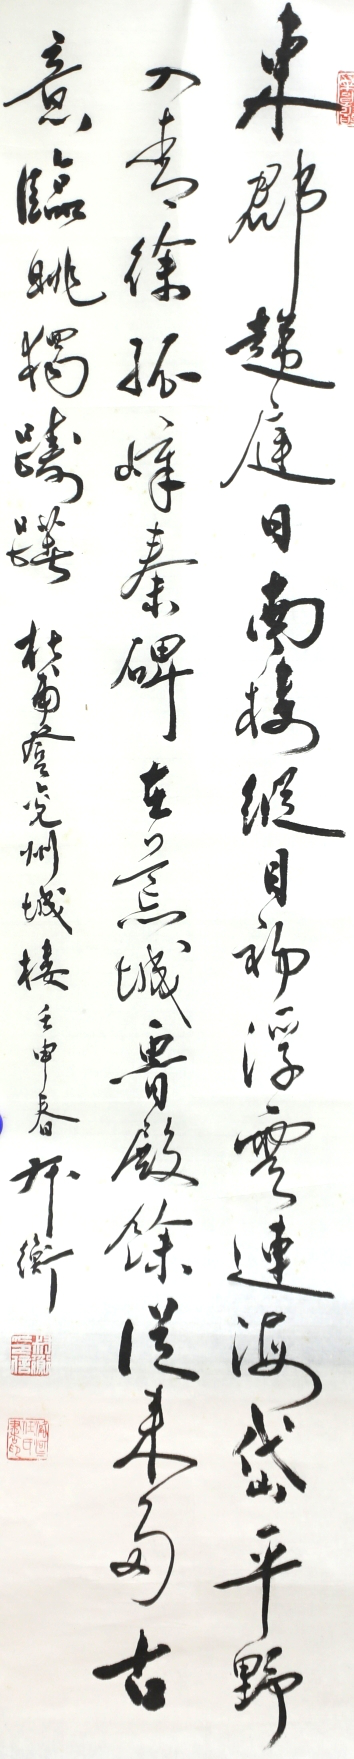 東郡趨庭日南樓縱目初浮雲連海岱平野
入青徐孤嶂秦碑在荒城魯殿餘從来多古
意臨眺獨躊躇 杜甫登兗州城樓 壬申春 衡